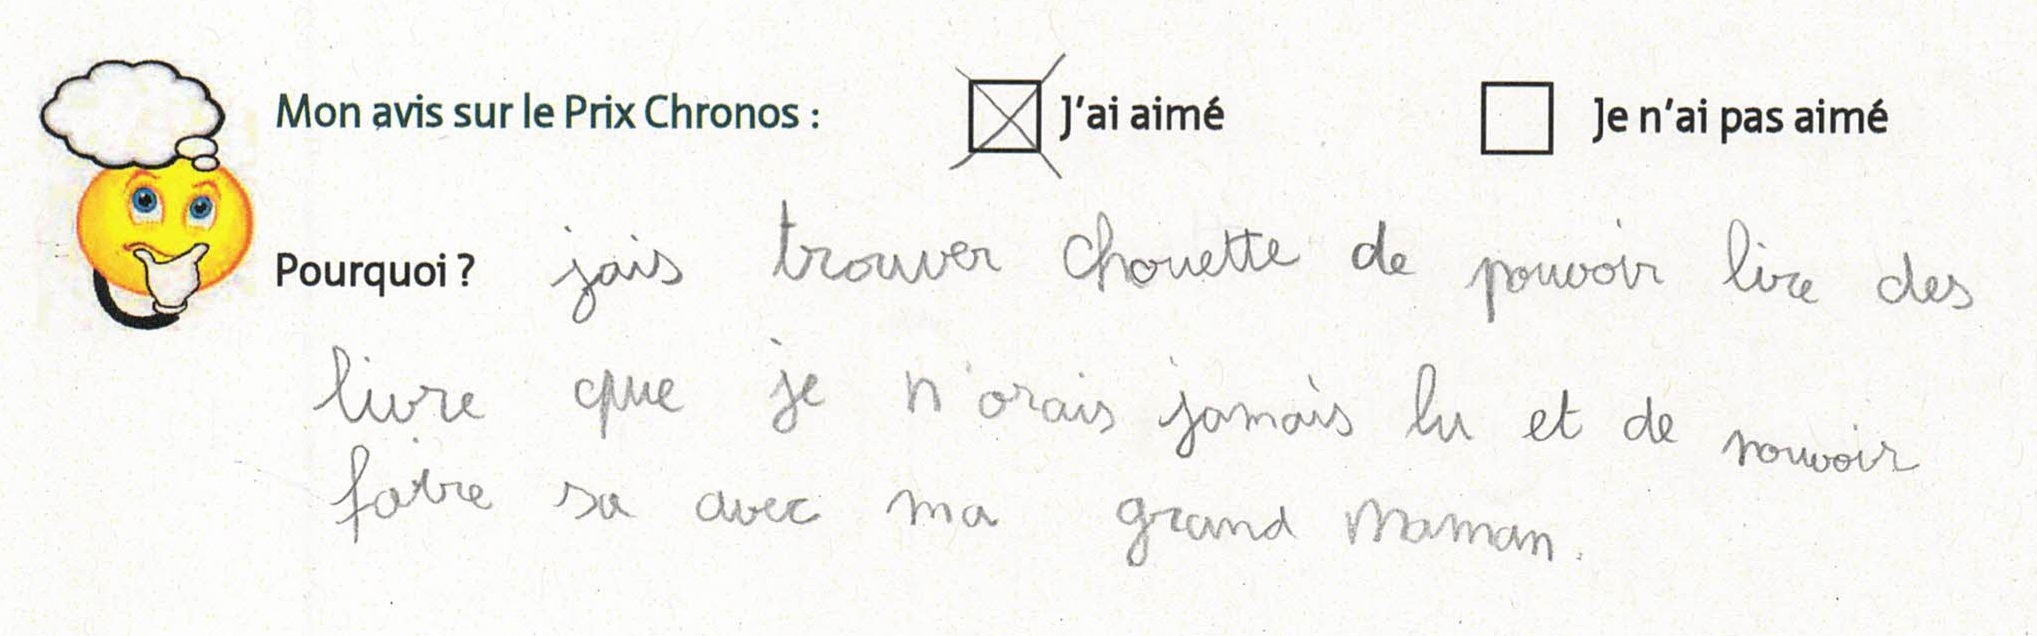 Mon avis sur le Prix Chronos : J'ai aimé Je n'ai pas aimé
Pourquoi ? jais trouver chouette de pouvoir lire des
livre que je n'orais jamais lu et de pouvoir
faire sa avec ma grand maman.